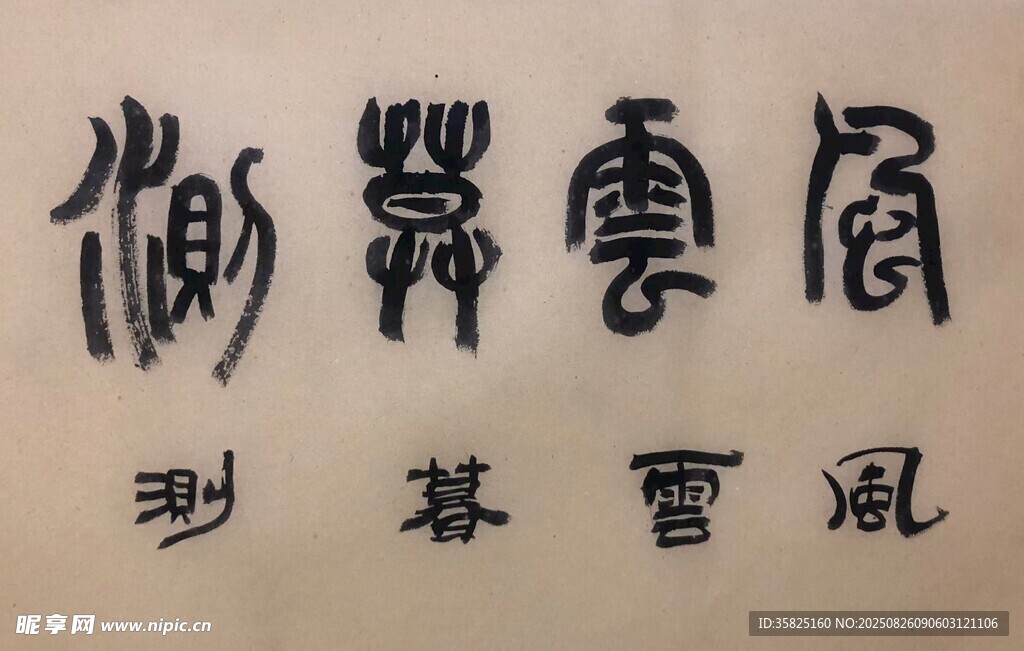 風雲暮測
風雲暮測
昵享网 www.nipic.cn
ID:35825160 NO:20250826090603121106